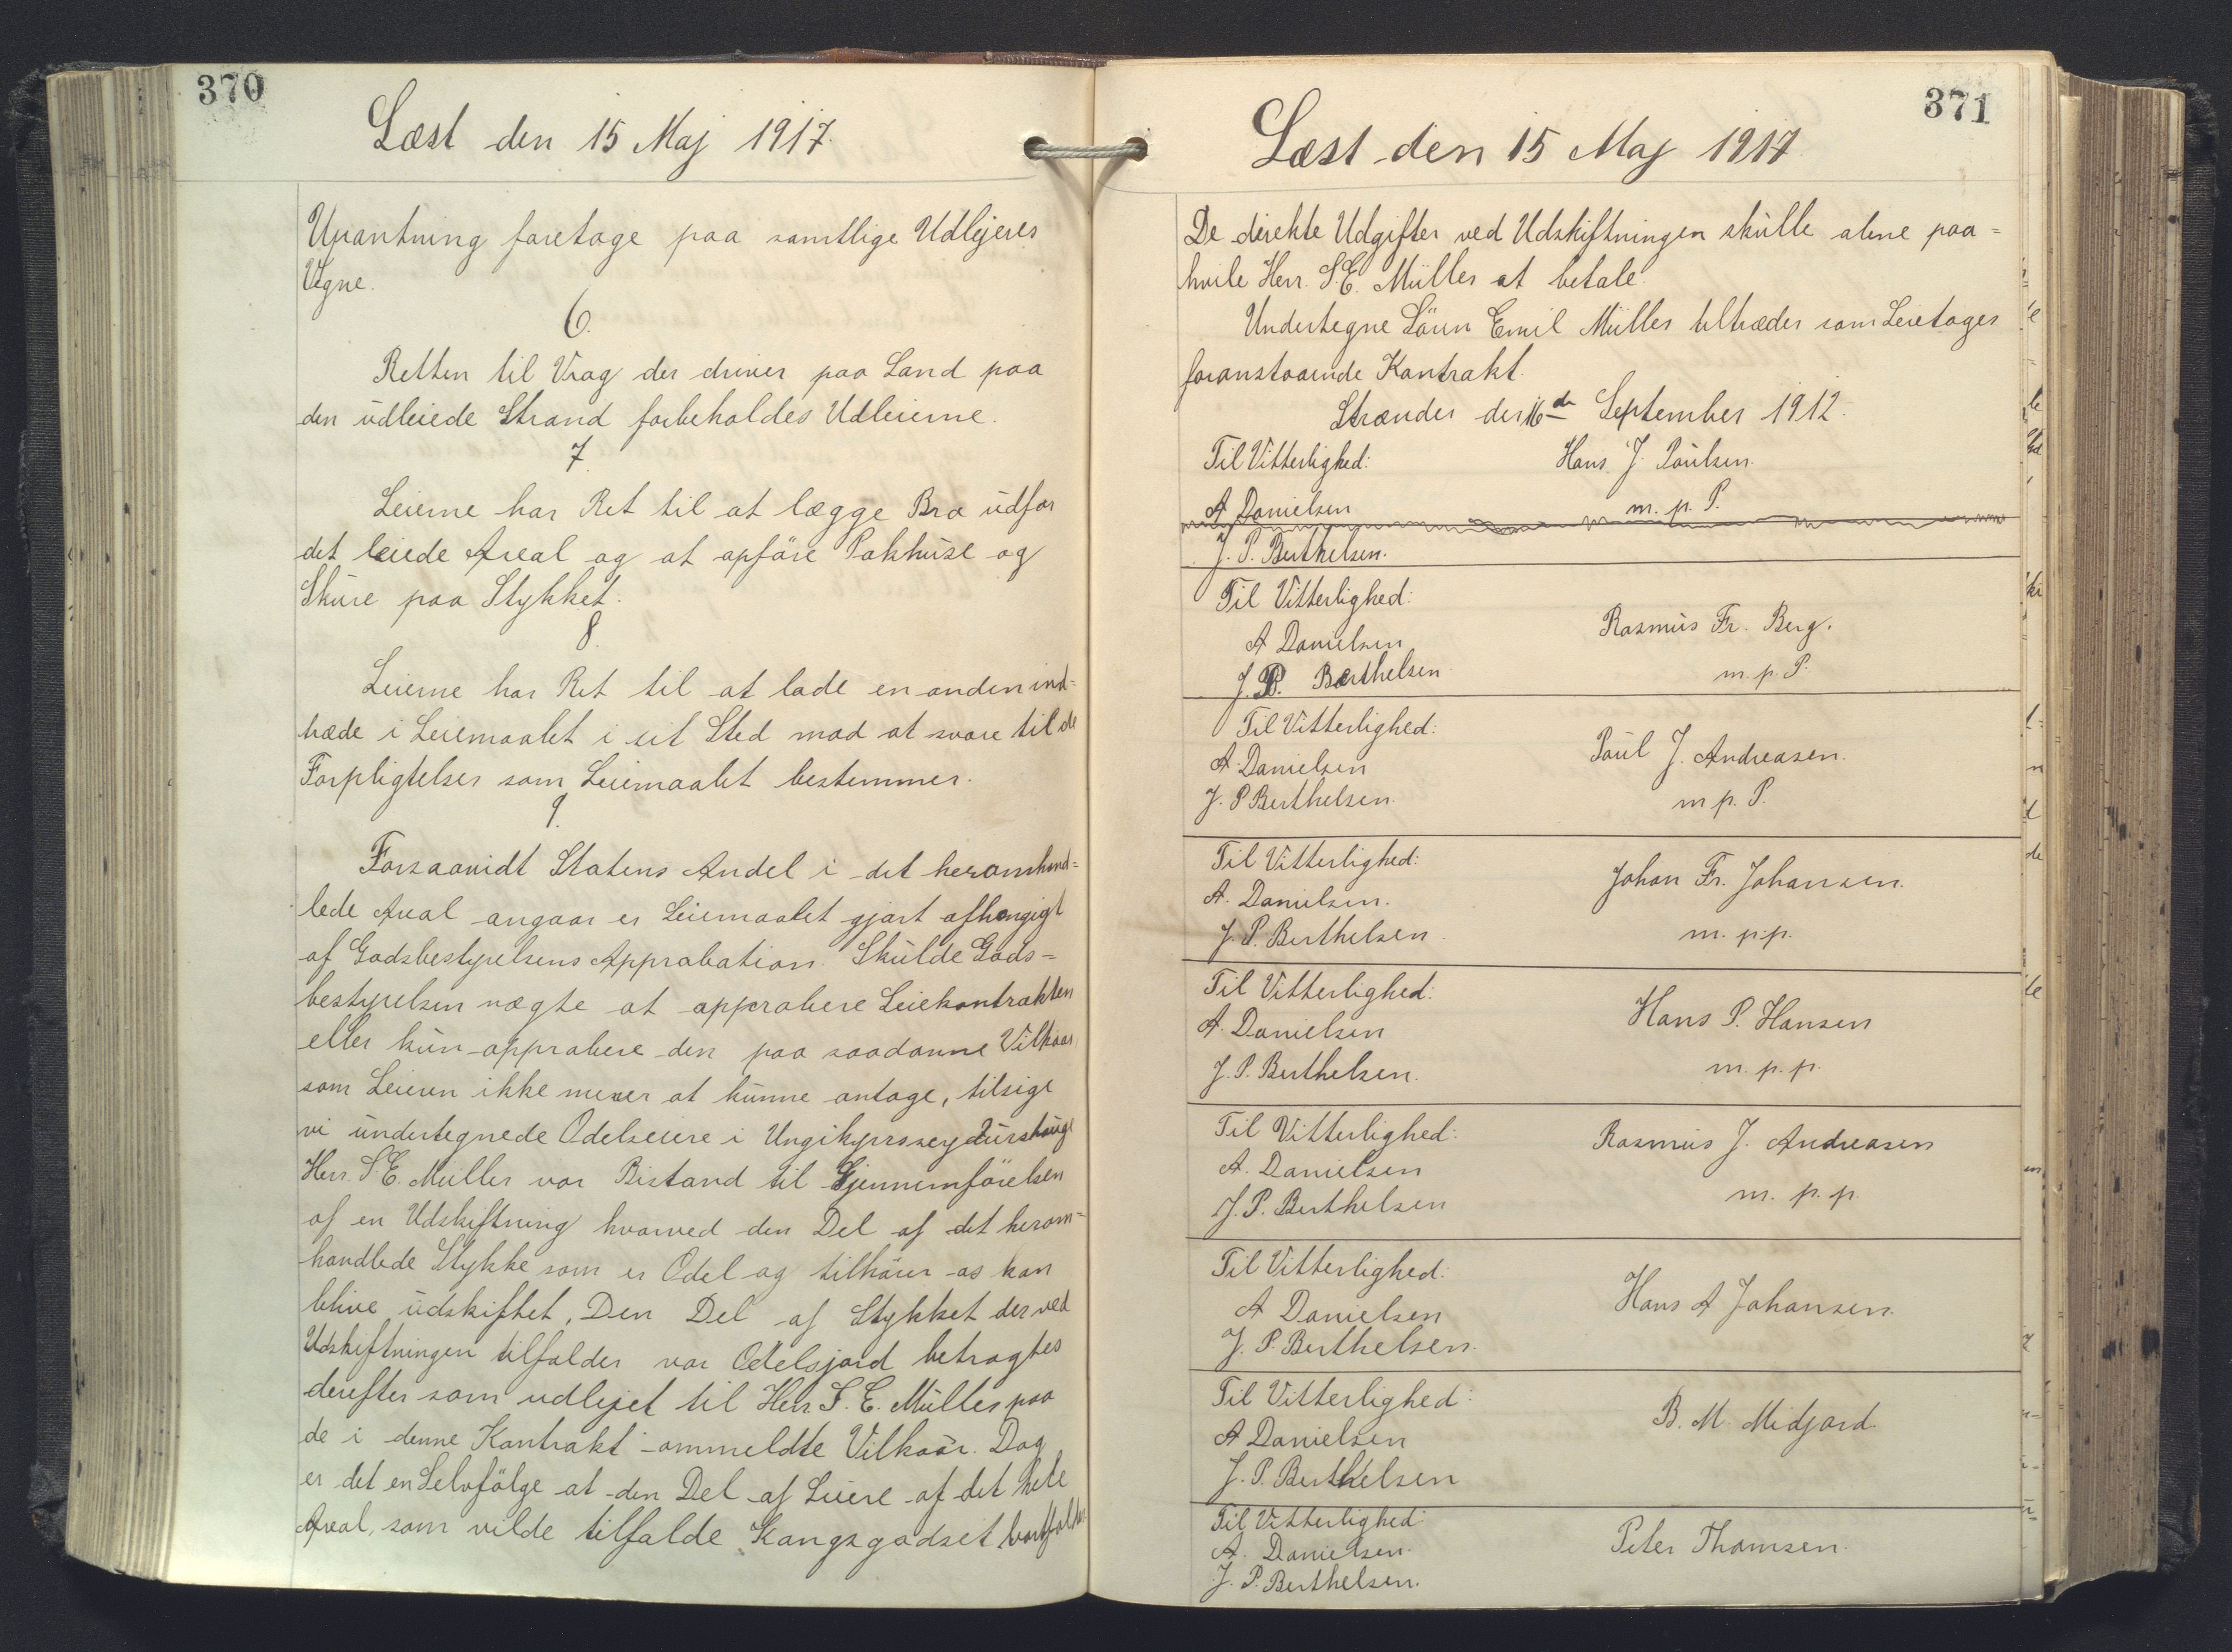 370
Læst den 15 Maj 1917.
Upantning foretage paa samtlige Udlejeres
Vegne.
6.
Retten til Vrag der driver paa Land paa
den udleiede Strand forbeholdes Udleierne.
7.
Leierne har Ret til at lægge Bro udfor
det leiede Areal og at opføre Pakhuse og
Skure paa Stykket.
8.
Leierne har Ret til at lade en anden ind-
træde i Leiemaalet i sit Sted mod at svare til de
Forpligtelser som Leiemaalet bestemmer.
9.
Forsaavidt Statens Andel i det heromhand-
lede Areal angaar er Leiemaalet gjort afhængigt
af Godsbestyrelsens Approbation. Skulde Gods-
bestyrelsen nægte at approbere Leiekontrakten
eller kun approbere den paa saadanne Vilkaar
som Leieren ikke mener at kunne antage, tilsige
vi undertegnede Odelseiere i
Herr. S. E. Müller vor Bistand til Gjennemførelsen
af en Udskiftning hvorved den Del af det herom-
handlede Stykke som er Odel og tilhører os kan
blive udskiftet. Den Del af Stykket der ved
Udskiftningen tilfalder vor Odelsjord betragtes
derefter som udlejet til Herr. S. E. Müller paa
de i denne Kontrakt ommeldte Vilkaar. Dog
er det en Selvfølge at den Del af Leiere af det hele
Areal, som vilde tilfalde Kongsgodset bortfalder
371
Læst den 15 Maj 1917
De direkte Udgifter ved Udskiftningen skulle alene paa=
hvile Herr. S. E. Müller at betale.
Undertegne Sören Emil Müller tiltræder som Leietager
foranstaaende Kontrakt.
Strænder der 16de September 1912.
Til Vitterlighed: Hans J. Poulsen.
A Danielsen m. p. P.
J. P. Berthelsen.
Til Vitterlighed:
A Danielsen Rasmus Fr. Berg.
J. P. Berthelsen m. p. P.
Til Vitterlighed:
A. Danielsen Poul J. Andreasen.
J. P Berthelsen. m p. P.
Til Vitterlighed:
A. Danielsen. Johan Fr. Johansen.
J. P. Berthelsen. m. p.p.
Til Vitterlighed:
A. Danielsen Hans P. Hansen
J. P. Berthelsen. m. p. p.
Til Vitterlighed: Rasmus J. Andreasen
A. Danielsen
J. P. Berthelsen m. p. p.
Til Vitterlighed:
A Danielsen Hans A Johansen.
J. P. Berthelsen.
Til Vitterlighed:
A Danielsen B. M. Midjord.
J. P. Berthelsen
Til Vitterlighed:
A. Danielsen. Peter Thomsen.
J. P. Berthelsen.